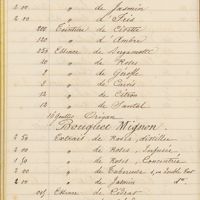 2 00 " de Jasmin
2 00 " d'Iris
200 Teinture de Civette
120 " d'Ambre
250 Essence de Bergamotte
10 " de Roses
2 " de Girofle
2 " de Carvi
12 " de Citron
12 " de Santal
16 gouttes Origan
Bouquet Mignon.
2 50 Extrait de Rose, distillée
2 00 " de Roses, Infusée
1 50 " de Roses, Concentrée
2 00 " de Tubéreuse
2 00 " de Jasmin
Essence de Cédrat